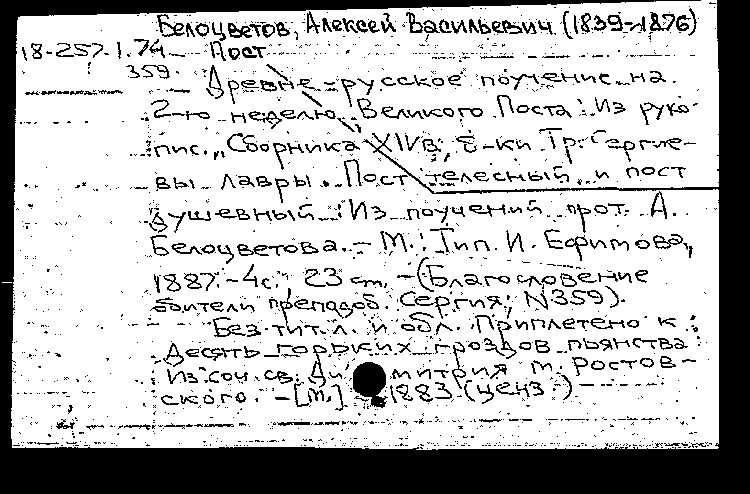 Белоцветов, Алексей Васильевич (1839-1876)
18-257.1.74 Пост
359.
Древне-русское поучение на
2-ю неделю Великого Поста: Из руко-
пис. "Сборника XIVв, б-ки Тр. Сергие-
вы лавры. Пост телесный и пост
душевный: Из поучений прот. А.
Белоцветова. - М.: Тип. И. Ефимова,
1887. - 4с.; 23 см. - (Благословение
обители преподоб. Сергия; N359).
Без тит.л. и обл. Приплетено к:
Десять горьких гроздов пьянства:
Из соч. св. Димитрия м. Ростов-
ского. - [М.] 1883 (ценз.)